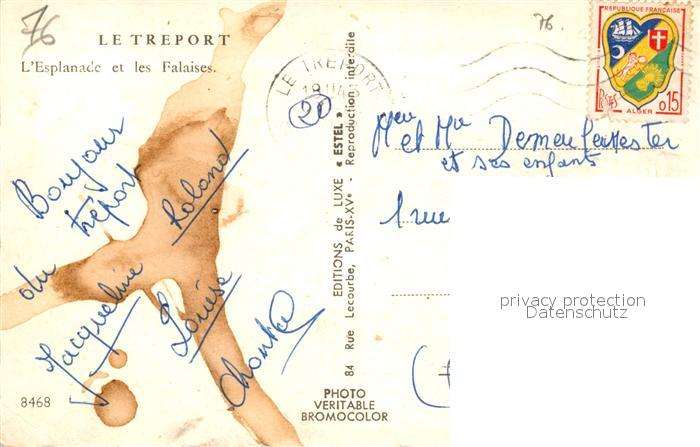 76
LE TREPORT
L'Esplanade et les Falaises.
Bonjour
du tréport
Roland
Jacqueline
Louise
8468
LE TREPORT
20
76.
REPUBLIQUE FRANÇAISE
POSTES
0,15
ALGER
et
et ses enfants
1 rue
privacy protection
Datenschutz
EDITIONS de LUXE « ESTEL »
84 Rue Lecourbe, PARIS-XVe - Reproduction interdite
PHOTO
VERITABLE
BROMOCOLOR